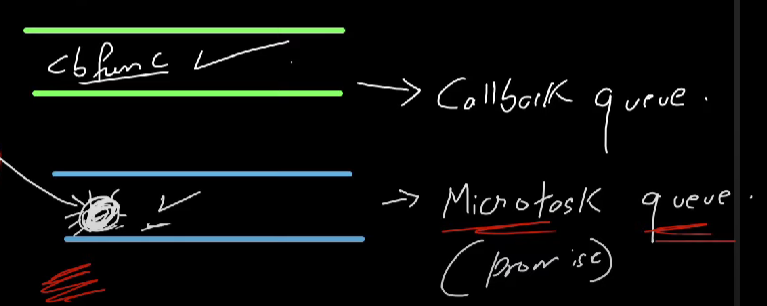 cbfunc
Callback queue.
Microtask queue.
(promise)